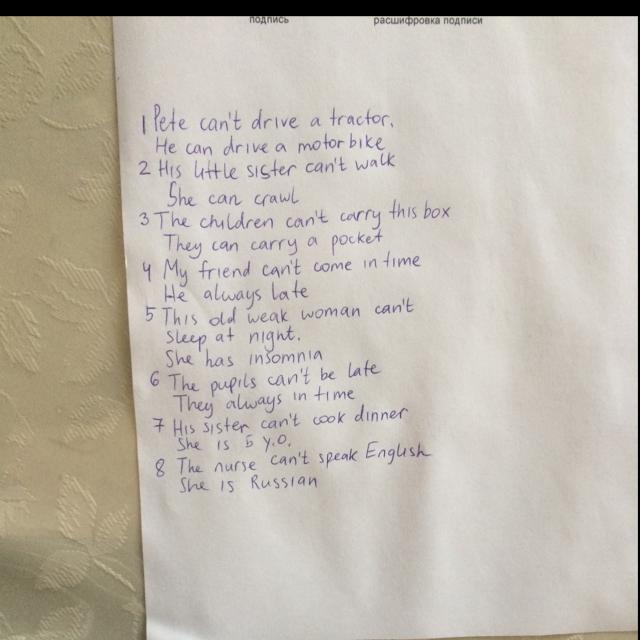 подпись расшифровка подписи
1 Pete can't drive a tractor.
He can drive a motorbike
2 His little sister can't walk
She can crawl
3 The children can't carry this box
They can carry a pocket
4 My friend can't come in time
He always late
5 This old weak woman can't
sleep at night.
She has insomnia
6 The pupils can't be late
They always in time
7 His sister can't cook dinner
She is 5 y.o.
8 The nurse can't speak English
She is Russian